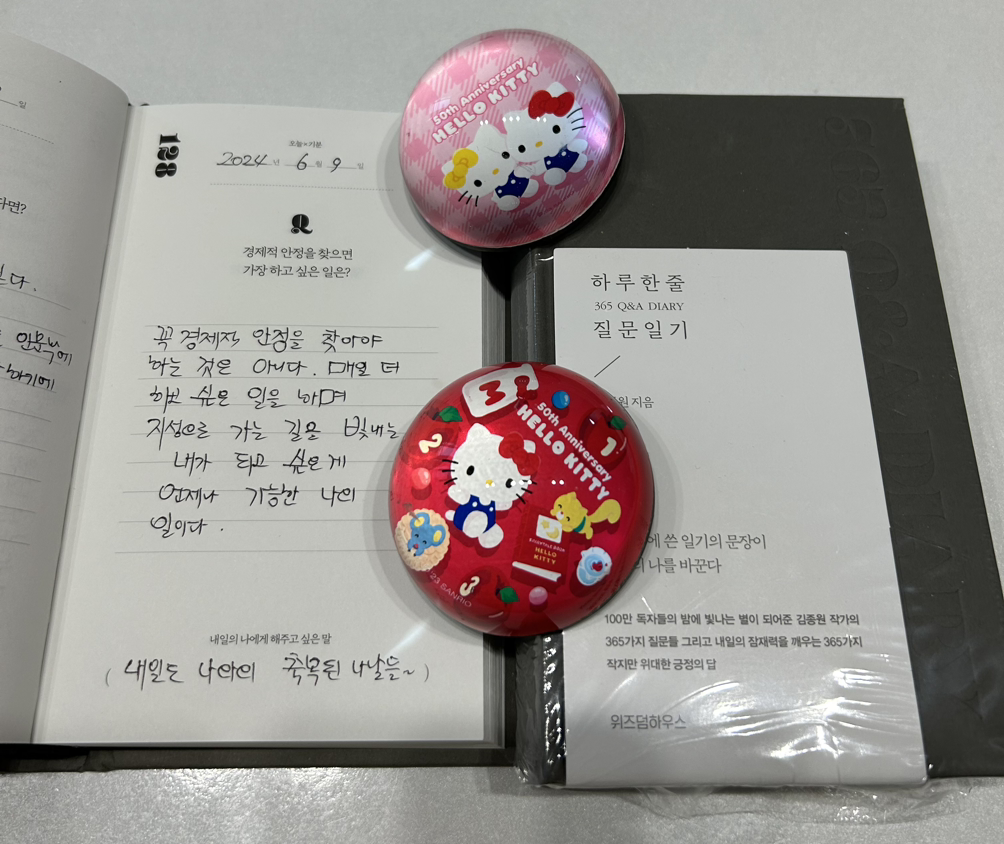 일
다면?
다.
128
오늘×기분
2024년 6월 9일
Q
경제적 안정을 찾으면
가장 하고 싶은 일은?
꼭 경제적 안정을 찾아야
하는 것은 아니다. 매일 더
하고 싶은 일을 하며
지성으로 가는 길은 빛내는
내가 되고 싶은 게
언제나 가능한 나의
일이다.
내일의 나에게 해주고 싶은 말
(내일도 나와의 축복된 나날들~)
50th Anniversary
HELLO KITTY
50th Anniversary
HELLO KITTY
1
2
3
HELLO
KITTY
SANRIO
하루 한 줄
365 Q&A DIARY
질문 일기
원 지음
에 쓴 일기의 문장이
나를 바꾼다
100만 독자들의 밤에 빛나는 별이 되어준 김종원 작가의
365가지 질문들 그리고 내일의 잠재력을 깨우는 365가지
작지만 위대한 긍정의 답
위즈덤하우스